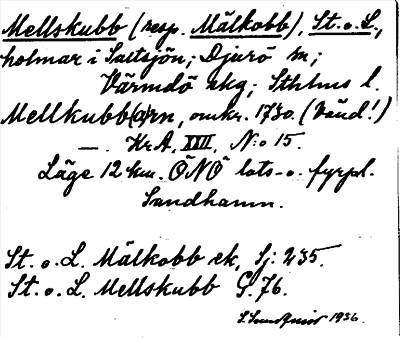 Mellskubb (resp. Mälkobb), St. o. L.,
holmar i Saltsjön; Djurö sn;
Värmdö skg; Sthlms l.
Mellkubb(a)rn, omkr. 1730. (Vänd!)
—. KrA, XXII, N:o 15.
Läge 12 km. ÖNÖ lots- o. fyrpl.
Sandhamn.
St. o. L. Mälkobb ek, Sj: 235.
St. o. L. Mellskubb G. 76.
1936